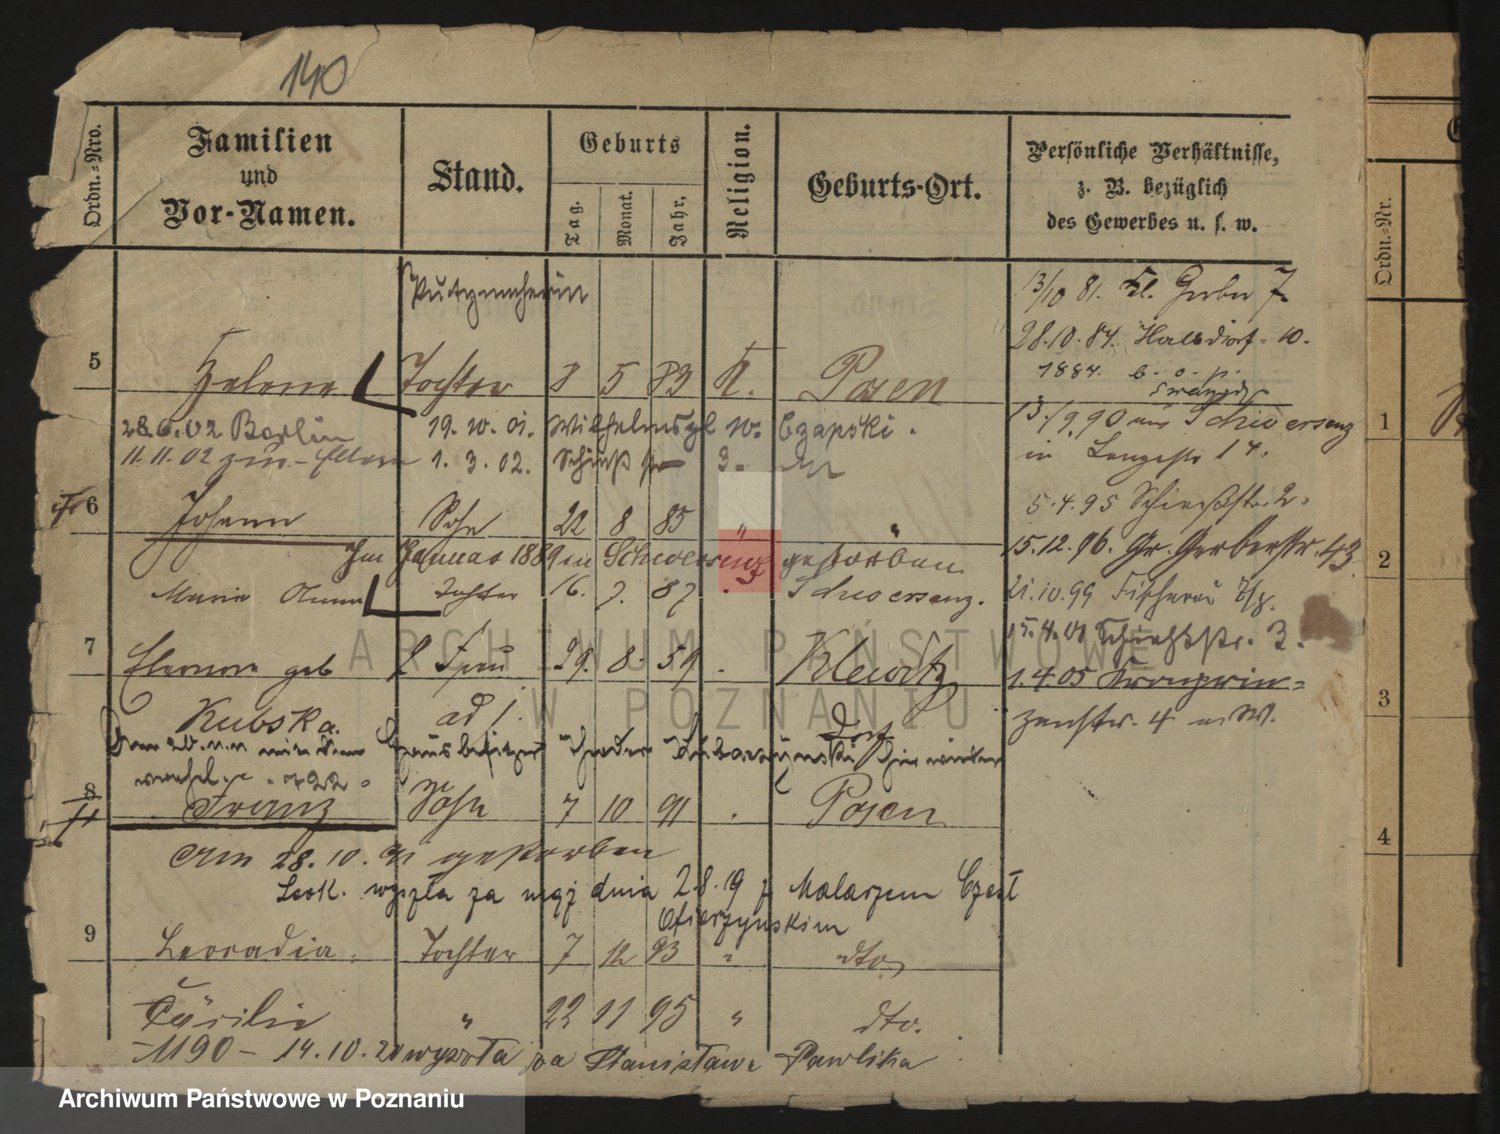 140
Ordn.=Nro.
Familien
und
Vor-Namen.
Stand.
Geburts
Tag.
Monat.
Jahr,
Religion.
Geburts-Ort.
Persönliche Verhältnisse,
z. B. bezüglich
des Gewerbes u. s. w.
Ordn.=Nr.
Putzmacherin
13/10 81. Kl. Gerber 7
28.10.84. 10.
1884.
5 Helene Tochter 8 5 83 K. Posen
13./9.90 aus Schwersenz
in Langestr 14.
28.6.02 Berlin 19.10.01. Wilhelmspl 10. Czapski.
11.11.02 zu Eltern 1.3.02. Schießstr 3.
5.4.95 Schießstr. 2.
6 Johann Sohn 22 8 85 " "
Im Januar 1889 in Schwersenz gestorben
15.12.96. Gr. Gerberstr. 43
Maria Anna Tochter 16. 7. 87 . Schwersenz.
21.10.99 Fischerei
15.4.01 Schießstr. 3.
7 Eleonore geb 2 Frau 29. 8. 59 . Klewitz
Kubska. ad 1. Dorf
1.4.05 Kronprin=
zenstr. 4 W.
Hausbesitzer Theodor hier wieder
722
8 Franz Sohn 7 10 91 . Posen
Am 28.10.91 gestorben
Leok. wyszła za mąż dnia 2.8.19 z Malarzem Czesł
Ofierzynskim
9 Leocadia. Tochter 7 12 93 " dto
Cäcilie " 22 11 95 " dto.
-1190- 14.10.20 wyszła za Stanisława Pawlika
1
2
3
4
ARCHIWUM PAŃSTWOWE
W POZNANIU
Archiwum Państwowe w Poznaniu